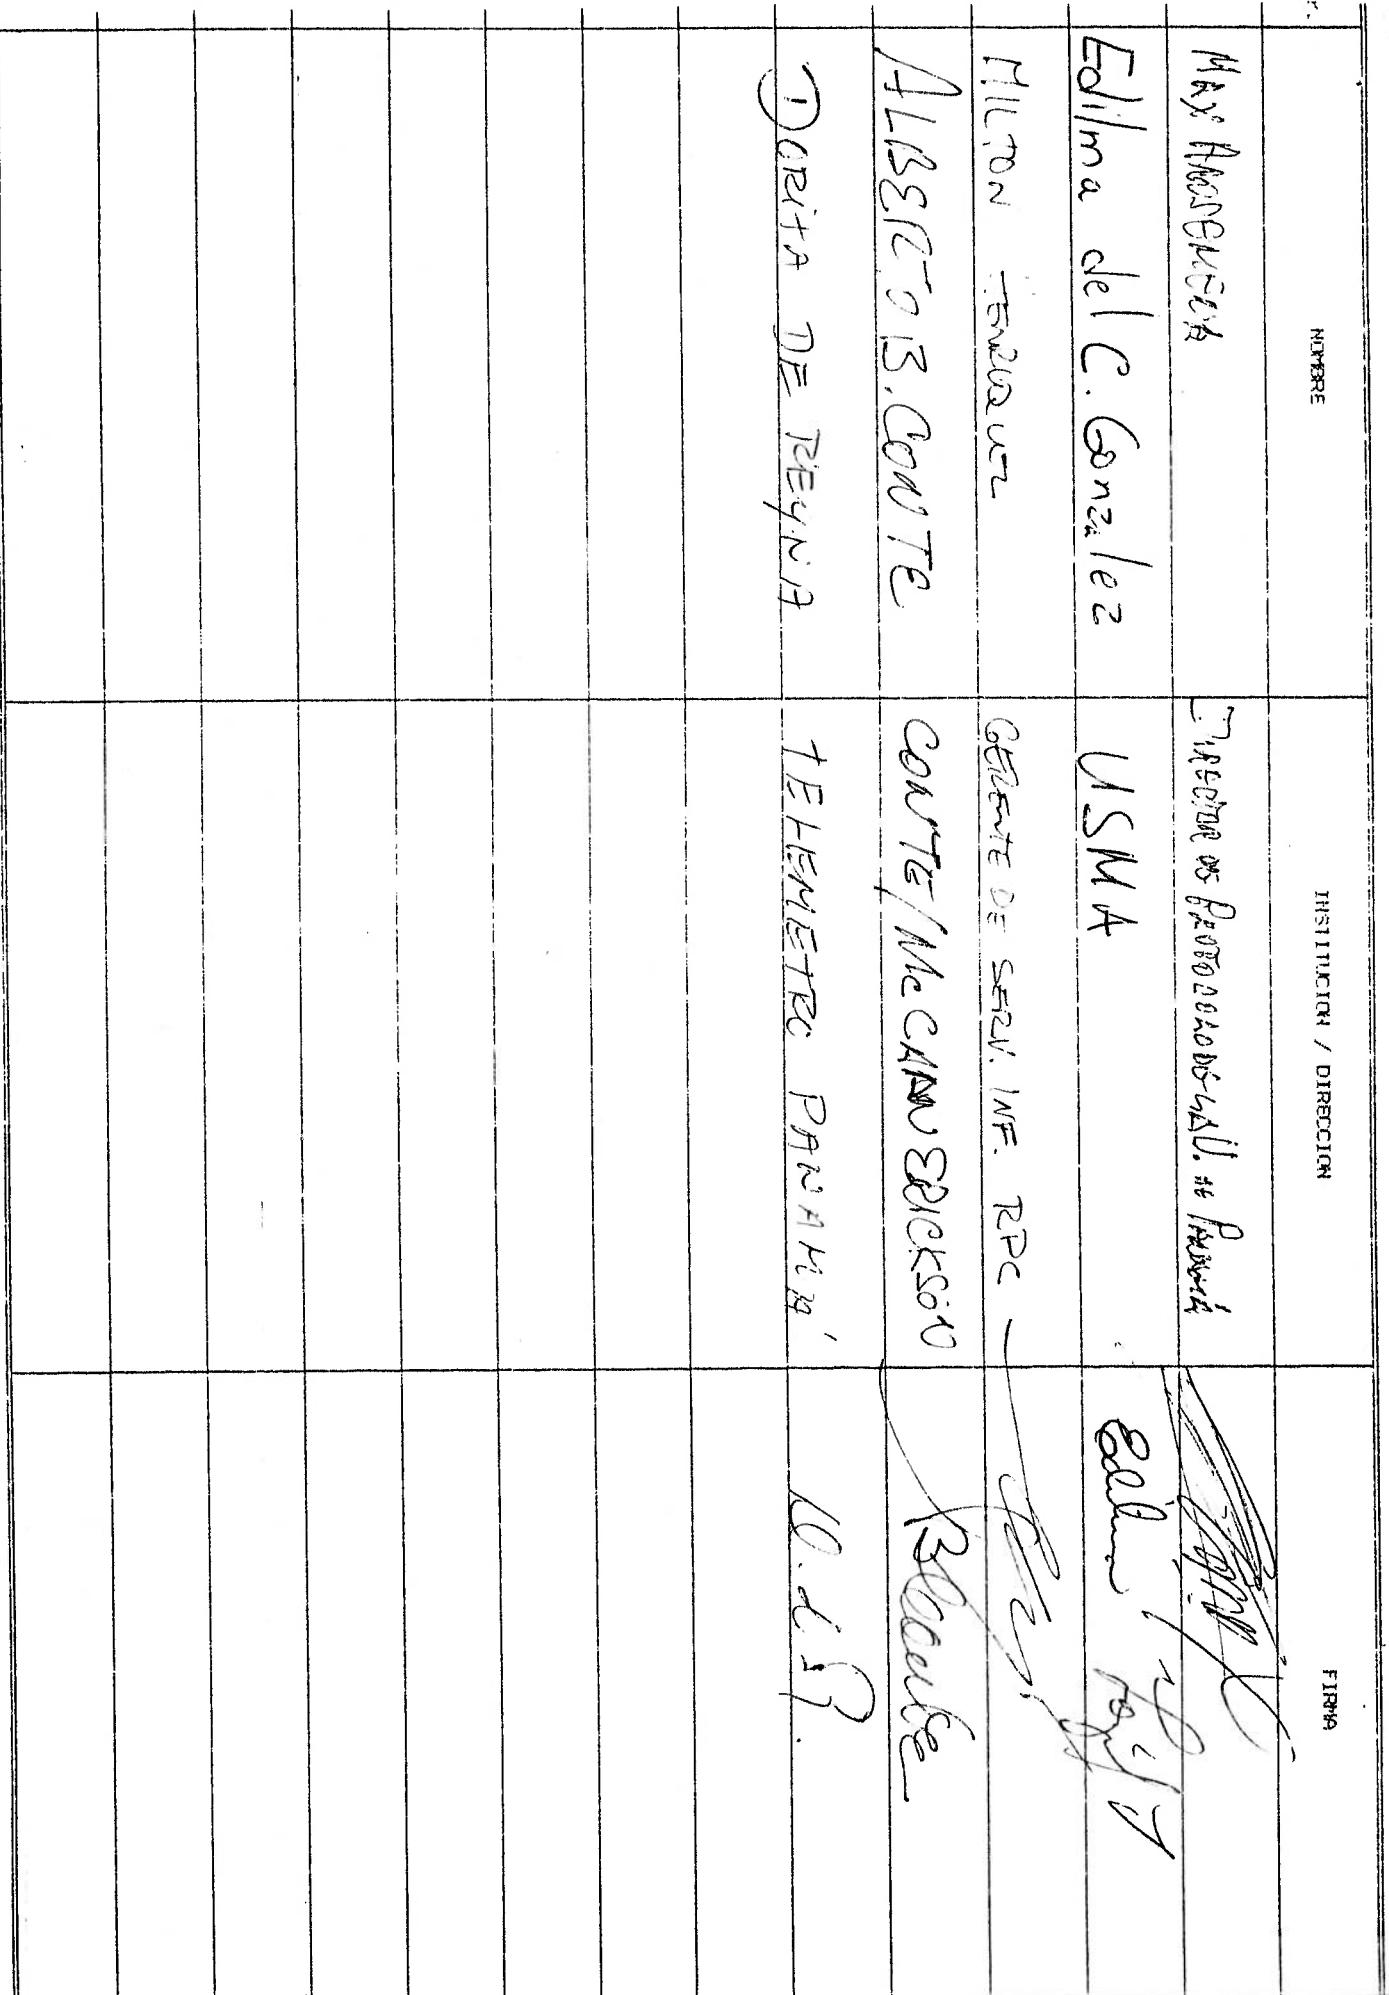 NOMBRE INSTITUCION / DIRECCION FIRMA
MAX AROSEMENA DIRECTOR DE PROTOCOLO DE LA U. DE PANAMÁ
Edilma del C. Gonzalez USMA Edilma
MILTON GERENTE DE SERV. INF. RPC
ALBERTO B. CONTE CONTE/McCANN ERICKSON BConte
DORITA DE REYNA TELEMETRO PANAMÁ D. de R.